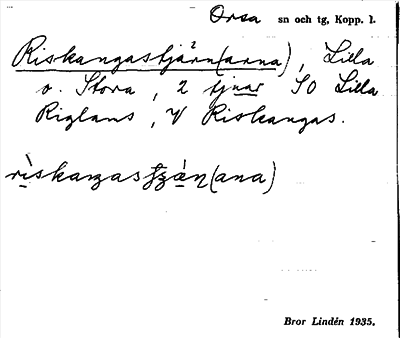 Orsa sn och tg, Kopp. l.
Riskangastjärn(arna), Lilla
o. Stora, 2 tjnar SO Lilla
Riglans, V Riskangas.
Bror Lindén 1935.